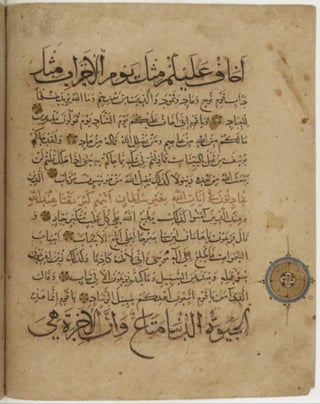 اخاف عليكم مثل يوم الاحزاب مثل
داب قوم نوح وعاد وثمود والذين من بعدهم وما الله يريد ظلما
للعباد ويا قوم اني اخاف عليكم يوم التناد يوم تولون مدبرين
مالكم من الله من عاصم ومن يضلل الله فما له من هاد ولقد جاءكم
يوسف من قبل بالبينات فما زلتم في شك مما جاءكم به حتى اذا هلك قلتم لن
يبعث الله من بعده رسولا كذلك يضل الله من هو مسرف مرتاب الذين
يجادلون في آيات الله بغير سلطان اتيهم كبر مقتا عند الله
وعند الذين آمنوا كذلك يطبع الله على كل قلب متكبر جبار و
قال فرعون يا هامان ابن لي صرحا لعلي ابلغ الاسباب اسباب
السموات فاطلع الى اله موسى واني لاظنه كاذبا وكذلك زين لفرعون
سوء عمله وصد عن السبيل وما كيد فرعون الا في تباب وقال
الذي آمن يا قوم اتبعون اهدكم سبيل الرشاد يا قوم انما هذه
الحيوة الدنيا متاع وان الاخرة هي